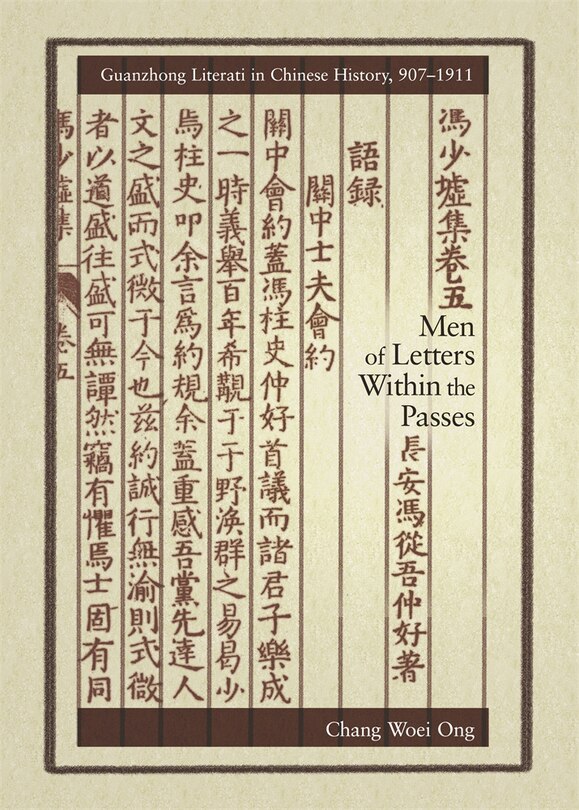 Guanzhong Literati in Chinese History, 907–1911
馮少墟集卷五
Men
of Letters
Within the
Passes
長安馮從吾仲好著
語録
關中士夫會約
關中會約蓋馮柱史仲好首議而諸君子樂成
之一時義舉百年希覯于于野渙群之易曷少
焉柱史叩余言爲約規余蓋重感吾黨先達人
文之盛而式微于今也茲約誠行無渝則式微
者以道盛往盛可無譚然竊有懼焉士固有同
馮少墟集 卷五
Chang Woei Ong